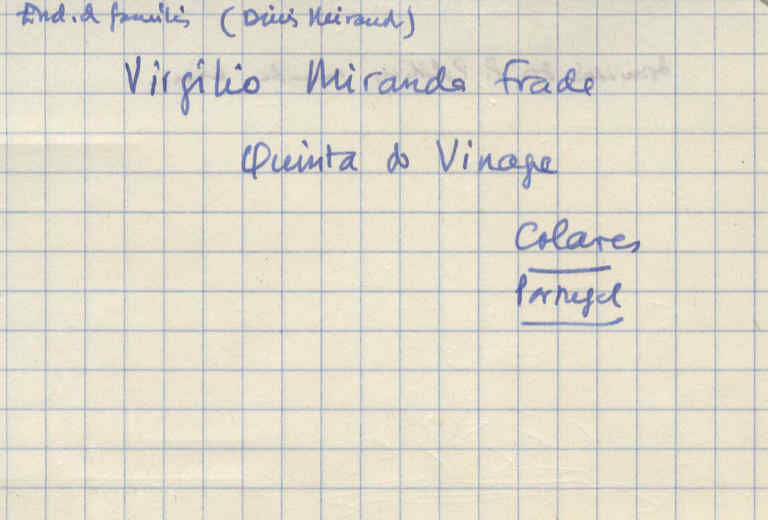 End. d família (Dinis Miranda)
Virgílio Miranda Frade
Quinta do Vinagre
Colares
Portugal